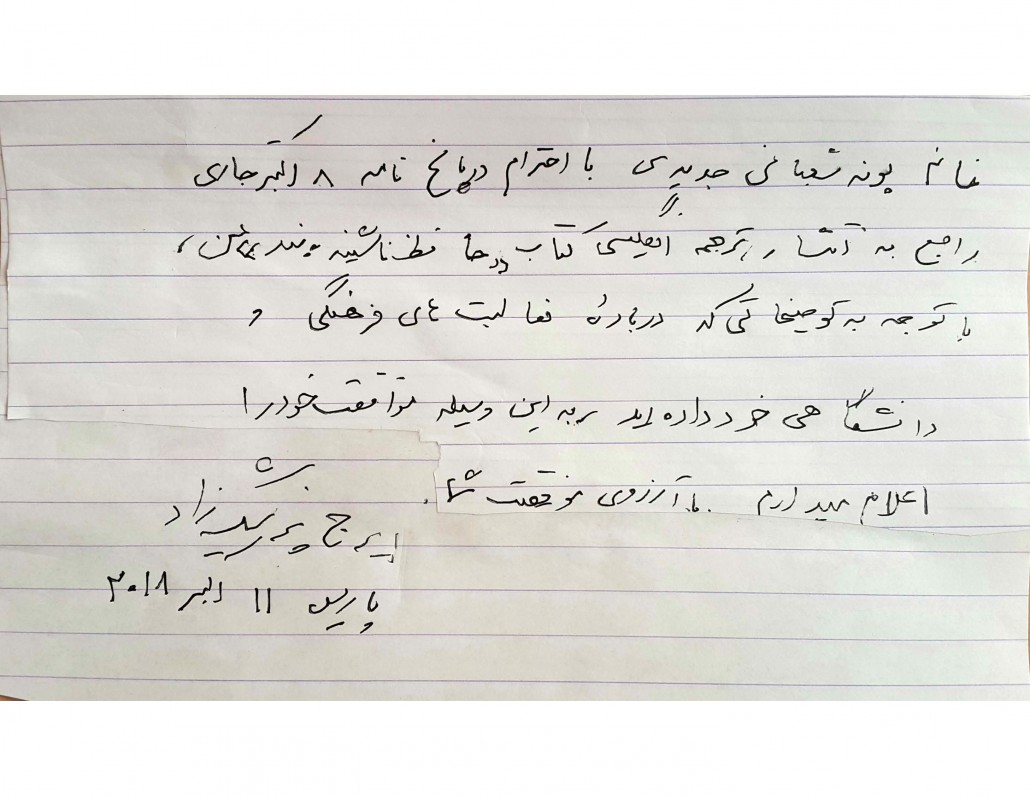 خانم پونه شعبانی جدیدی با احترام در پاسخ نامه ۸ اکتبر جاری
راجع به انتشار ترجمه انگلیسی کتاب ((حافظ ناشنیده پند)) من،
با توجه به توضیحاتی که دربارهٔ فعالیت های فرهنگی و
دانشگاهی خود داده اید به این وسیله موافقت خود را
اعلام میدارم با آرزوی موفقیت شما.
ایرج پزشکزاد
پاریس ۱۱ اکتبر ۲۰۱۸